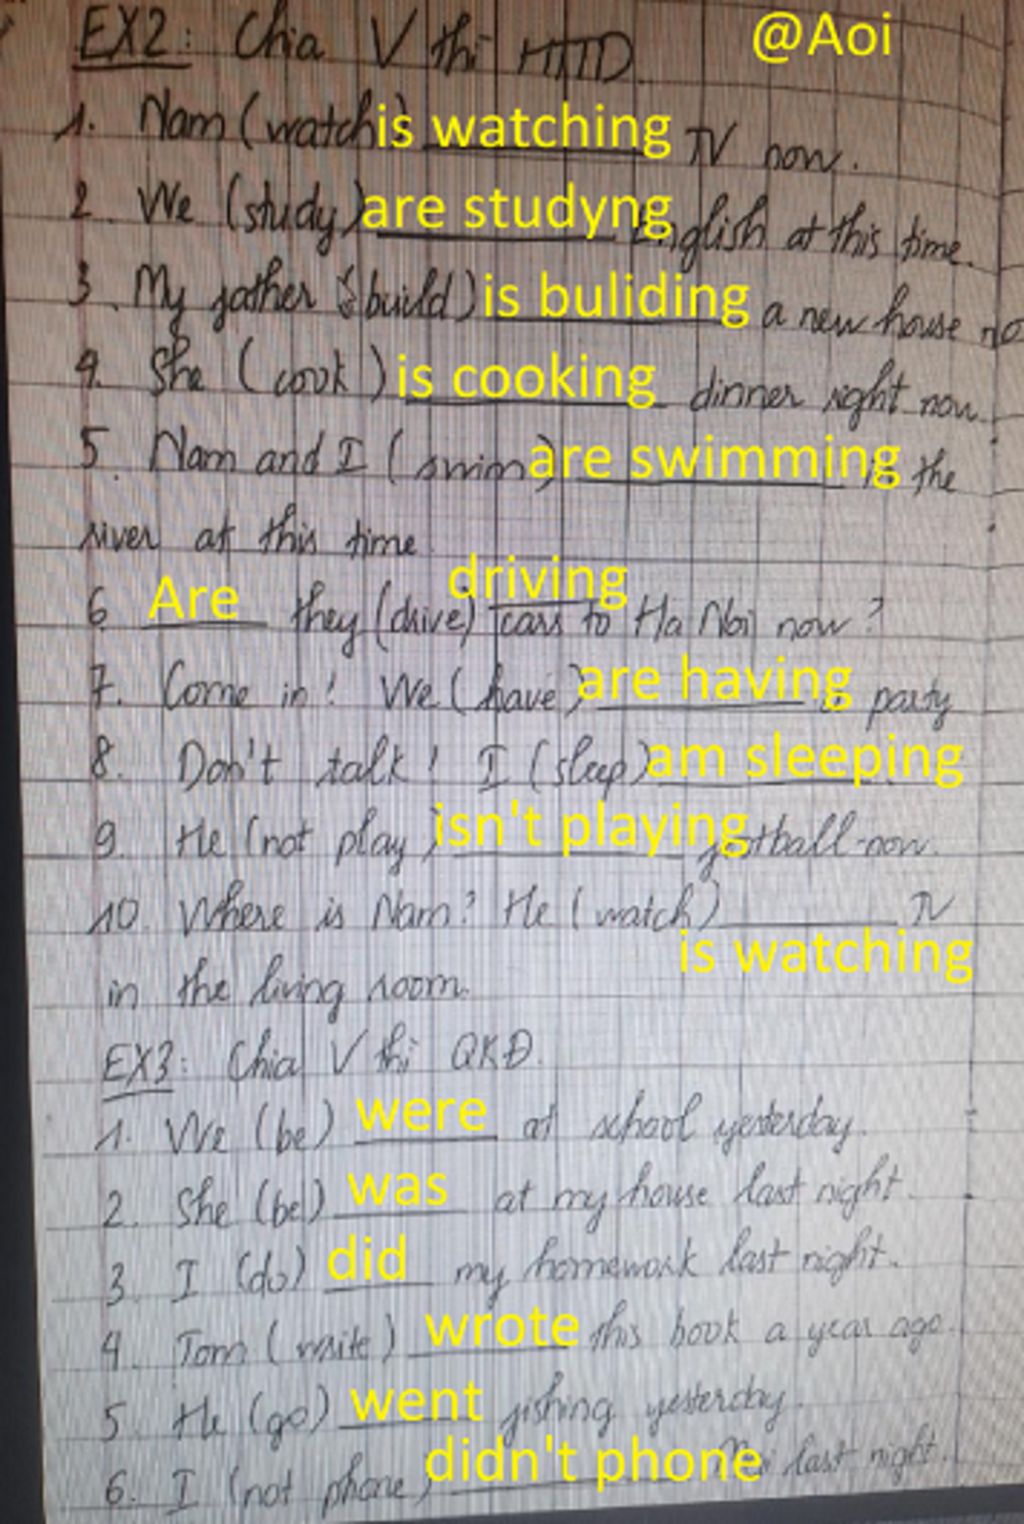 EX2: Chia V thì HTTD @Aoi
1. Nam (watch) is watching TV now.
2. We (study) are studyng English at this time.
3. My father (build) is buliding a new house no
4. She (cook) is cooking dinner right now.
5. Nam and I (swim) are swimming the
river at this time
6. Are they (drive) driving cars to Ha Noi now?
7. Come in! We (have) are having party
8. Don't talk! I (sleep) am sleeping
9. He (not play) isn't playing football now.
10. Where is Nam? He (watch) is watching TV
in the living room.
EX3: Chia V thì QKĐ.
1. We (be) were at school yesterday.
2. She (be) was at my house last night.
3. I (do) did my homework last night.
4. Tom (write) wrote this book a year ago.
5. He (go) went fishing yesterday.
6. I (not phone) didn't phone last night.